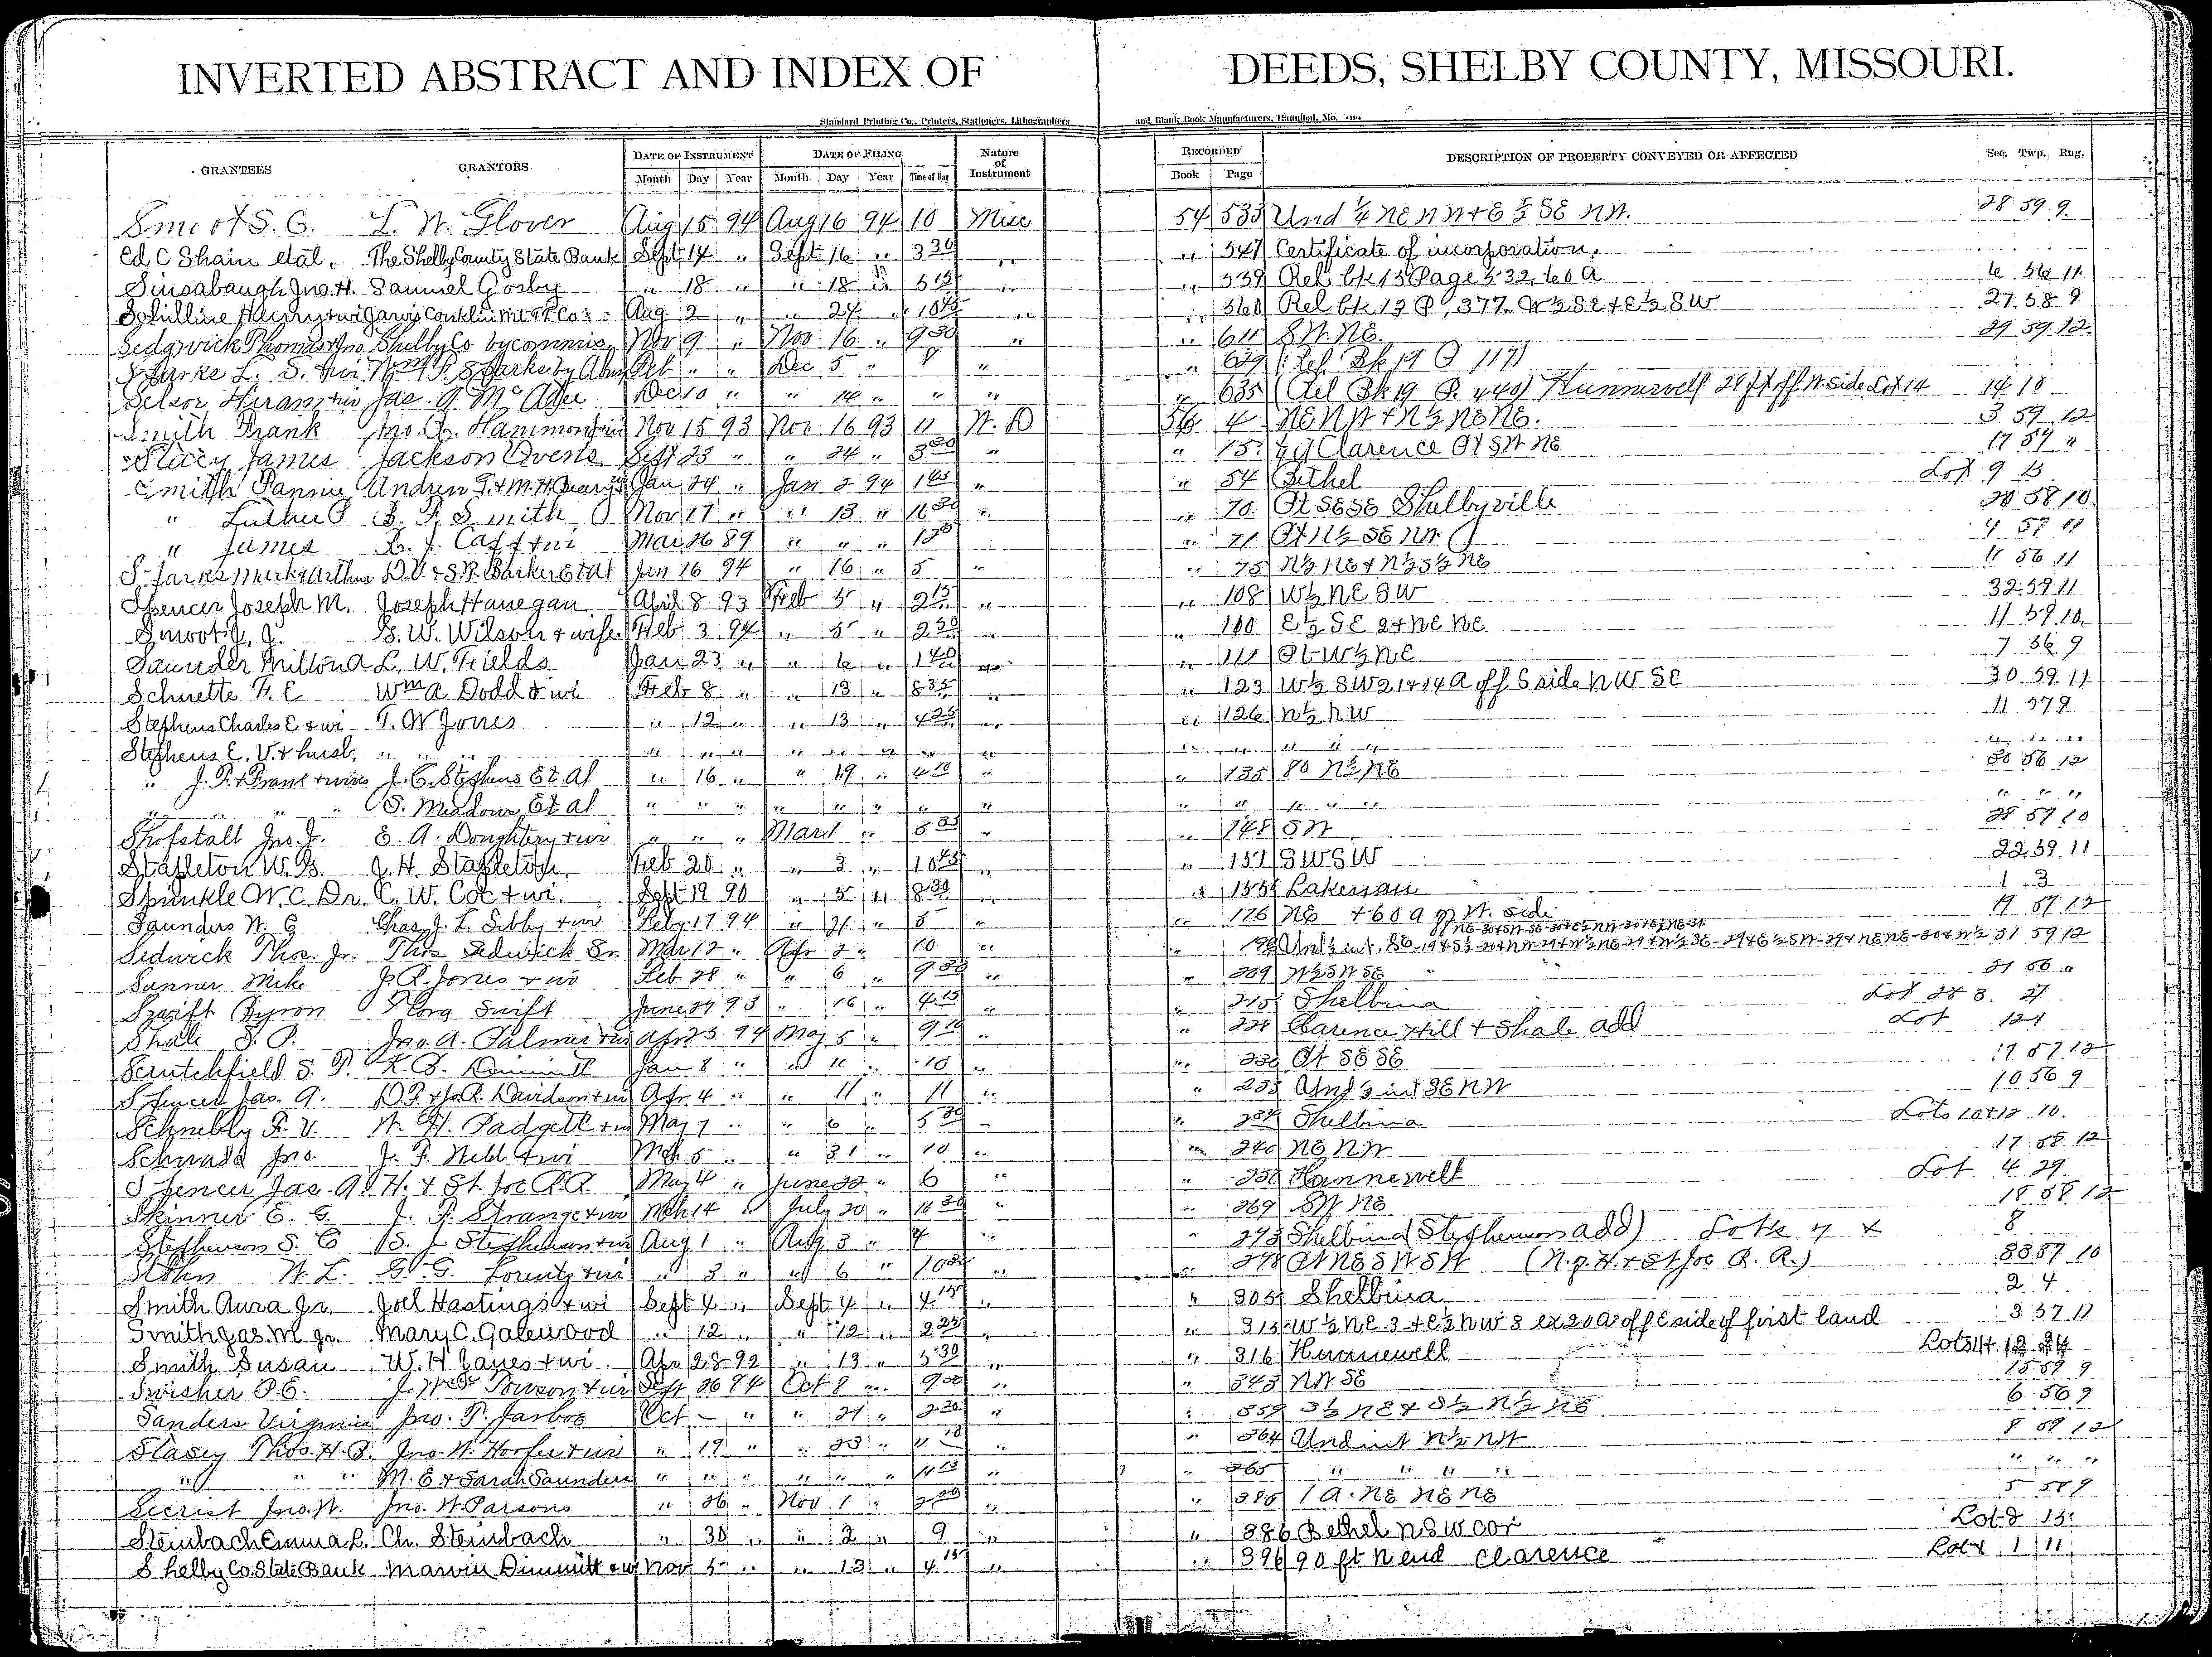 INVERTED ABSTRACT AND INDEX OF DEEDS, SHELBY COUNTY, MISSOURI.
Standard Printing Co., Printers, Stationers, Lithographers and Blank Book Manufacturers, Hannibal, Mo.
GRANTEES GRANTORS DATE OF INSTRUMENT DATE OF FILING Nature of Instrument RECORDED DESCRIPTION OF PROPERTY CONVEYED OR AFFECTED Sec. Twp. Rng.
Month Day Year Month Day Year Time of Day Book Page
Smoot S. G. L. W. Glover Aug 15 94 Aug 16 94 10 Misc 54 533 Und ¼ NE NW + E ½ SE NW. 28 59 9
Ed C Shain etal. The Shelby County State Bank Sept 14 " Sept 16 " 3 30 " " 547 Certificate of incorporation.
Sinsabaugh Jno. H. Samuel Gosby " 18 " " 18 " 5 15 " " 559 Rel. bk 15 Page 532, 60 A 6 56 11
Aug 2 " " 24 " 10 45 " " 560 Rel bk 13 P, 377. W ½ SE + E ½ SW 27 58 9
Sedgwick Thomas + Jno Shelby Co by commis. Nov 9 " Nov. 16 " 9 30 " " 611 SW. NE. 29 59 12
Sparks L. S. + wi Wm P. Sparks by Dec 5 " 9 " " 629 (Rel Bk 19 P 117)
Selsor Hiram + wi Jas. A McAfee Dec 10 " " 14 " " " " 635 (Rel Bk 19 P. 440) Hunnewell 28 ft off W. Side Lot 14 14 10
Smith Frank Jno. A. Hammond + wi Nov 15 93 Nov. 16 93 11 W. D 56 4 NE NW + N ½ NE NE. 3 59 12
James Jackson Ovens Sept 23 " " 24 " 3 30 " " 15 Clarence Pt SW NE 17 57 "
Smith Fannie Jan 24 " Jan 2 94 1 45 " " 54 Bethel Lot 9 13
" Luther P B. F. Smith Nov 17 " " 13 " 10 30 " " 70 Pt SE SE Shelbyville 20 58 10
" James Mar 26 89 " " " 1 30 " 71 Pt N ½ SE NW 4 57 11
Sparks Mark + Arthur D. V. + S. R. Barker Et al Jan 16 94 " 16 " 5 " " 75 N ½ NE + N ½ S ½ NE 11 56 11
Spencer Joseph M. Joseph Hanegan April 8 93 Feb 5 " 2 15 " " 108 W ½ NE SW 32 59 11
Smoot J. J. B. W. Wilson + wife Feb 3 94 " 5 " 2 30 " " 110 E ½ SE 2 + NE NE 11 59 10
Saunder Milton A L. W. Fields Jan 23 " " 6 " 1 40 " " 111 Pt W ½ NE 7 56 9
Schuette F. E Wm A Dodd + wi Feb 8 " " 13 " 8 35 " " 123 W ½ SW 21 + 14 A off S side NW SE 30 59 11
Stephens Charles E + wi T. W Jones " 12 " " 13 " 4 25 " " 126 N ½ NW 11 57 9
Stephens E. V. + husb. " " " " " " " " " " " " " " " " " "
" J. P. + Frank + wives J. C. Stephens Et Al " 16 " " 19 " 4 10 " " 135 80 N ½ NE 30 56 12
" " " S. Meadows Et al " " " " " " " " " " " " " " " " "
Shofstall Jno. J. E. A. Doughtery + wi " " " Mar 1 " 5 30 " " 148 SW 28 57 10
Stapleton W. B. J. H. Stapleton Feb 20 " " 3 " 10 45 " " 151 SW SW 22 59 11
Sprinkle W. C. Dr. C. W. Coe + wi. Sept 19 90 " 5 " 8 30 " " 155 Lakenan 1 3
Saunders W. G Chas. J. L. Libby + wi Feby 17 94 " 21 " 5 " " 176 NE + 60 a of W. side 19 57 12
Sedwick Thos. Jr. Thos Sedwick Sr. Mar 12 " Apr 2 " 10 " 31 59 12
Sanner Mike J. R. Jones + wi Feb 28 " " 6 " 9 30 " " 209 W ½ SW SE 31 56 "
Swift Byron Flora Swift June 29 93 " 16 " 4 15 " " 215 Shelbina Lot 2 & 3 27
Shale S. P. Jno. A. Palmer + wi Apr 23 94 May 5 " 9 10 " " 228 Clarence Hill + Shale add Lot 121
Scrutchfield S. P. L. B. Dimmitt Jan 8 " " " 10 " " 230 Pt SE SE 17 57 12
Spencer Jas. A. D. P. + Jo. R. Davidson + wi Apr. 4 " " 11 " 11 " " 233 Und ½ int SE NW 10 56 9
Schnebly F. V. W. H. Padgett + wi May 7 " " 6 " 5 30 " " 234 Shelbina Lots 10 + 12 10
Schwada Jno. J. F. Webb + wi Mch 5 " " 31 " 10 " " 240 NE NW 17 58 12
Spencer Jas. A. H. + St. Joe R. R May 4 " June 22 " 6 " " 250 Hunnewell Lot 4 29
Skinner E. G. J. P. Strange + wi Mch 14 " July 20 " 10 30 " " 269 SW NE 18 58 12
Stephenson S. C B. J Stephenson + wi Aug 1 " Aug 3 " 4 " " 273 Shelbina (Stephenson add) Lots 7 + 8
W. L. G. G. Lorentz + wi " 3 " " 6 " 10 30 " " 278 Pt NE SW SW (N. of H. + St Joe R. R.) 33 57 10
Smith Aura Jr. Joel Hastings + wi Sept 4 " Sept 4 " 4 15 " " 305 Shelbina 2 4
Smith Jas. M Jr. Mary C. Gatewood " 12 " " 12 " 2 25 " " 315 W ½ NE 3 + E ½ NW 3 ex 20 a off E side of first land 3 57 11
Smith Susan W. H Janes + wi. Apr 28 92 " 13 " 5 30 " " 316 Hunnewell Lots 11 +
Swisher P. E. J. Wm Towson + wi Sept 26 94 Oct 8 " 9 00 " " 343 NW SE 15 59 9
Sanders Virginia Jno. P. Jarboe Oct - " " 21 " 2 20 " " 359 S ½ NE + S ½ N ½ NE 6 56 9
Stasey Thos. H. B. Jno. W. Hoofer + wi " 19 " " 23 " 11 10 " " 364 Und int N ½ NW 8 59 12
" " " M. E. + Sarah Saunders " " " " " " 11 15 " " 365 " " " " " " "
Secrist Jno. W. Jno. W Parsons " 26 " Nov 1 " 2 30 " " 385 1 A. NE NE NE 5 58 9
Steinbach Emma L. Ch. Steinbach " 30 " " 2 " 9 " " 386 Bethel N SW cor Lot 2 15
Shelby Co. State Bank Marvin Dimmitt + wi Nov 5 " " 13 " 4 15 " " 396 90 ft N end Clarence Lot 1 11